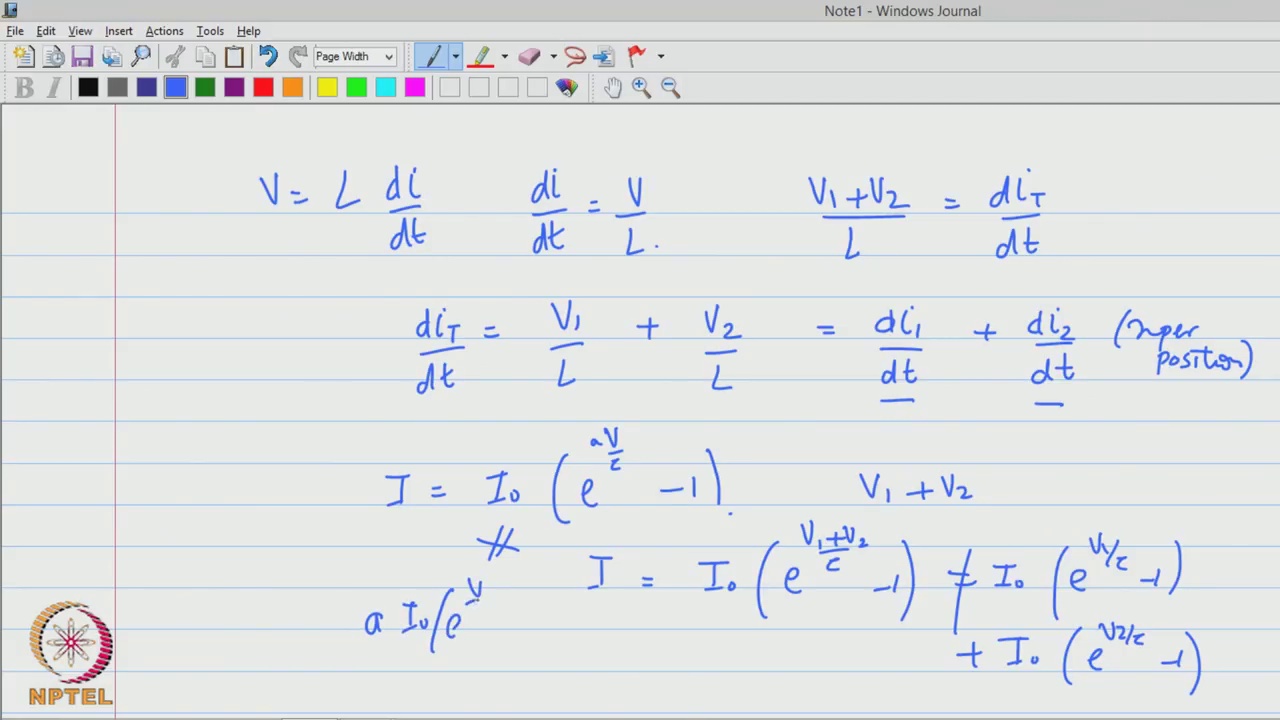 Note1 - Windows Journal
File Edit View Insert Actions Tools Help
Page Width
B I
V = L di/dt di/dt = V/L . (V1 + V2)/L = diT/dt
diT/dt = V1/L + V2/L = di1/dt + di2/dt (super
position)
I = I0 (e^(aV/c) - 1) . V1 + V2
I = I0 (e^((V1+V2)/c) - 1) ≠ I0 (e^(V1/c) - 1)
a I0 (e^V
+ I0 (e^(V2/c) - 1)
NPTEL